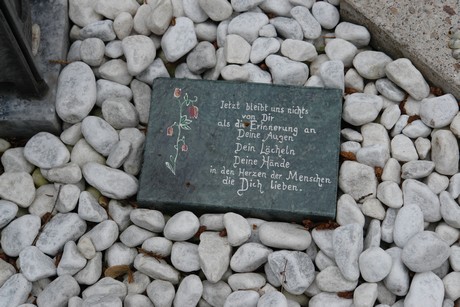 Jetzt bleibt uns nichts
von Dir
als die Erinnerung an
Deine Augen
Dein Lächeln
Deine Hände
in den Herzen der Menschen
die Dich lieben.